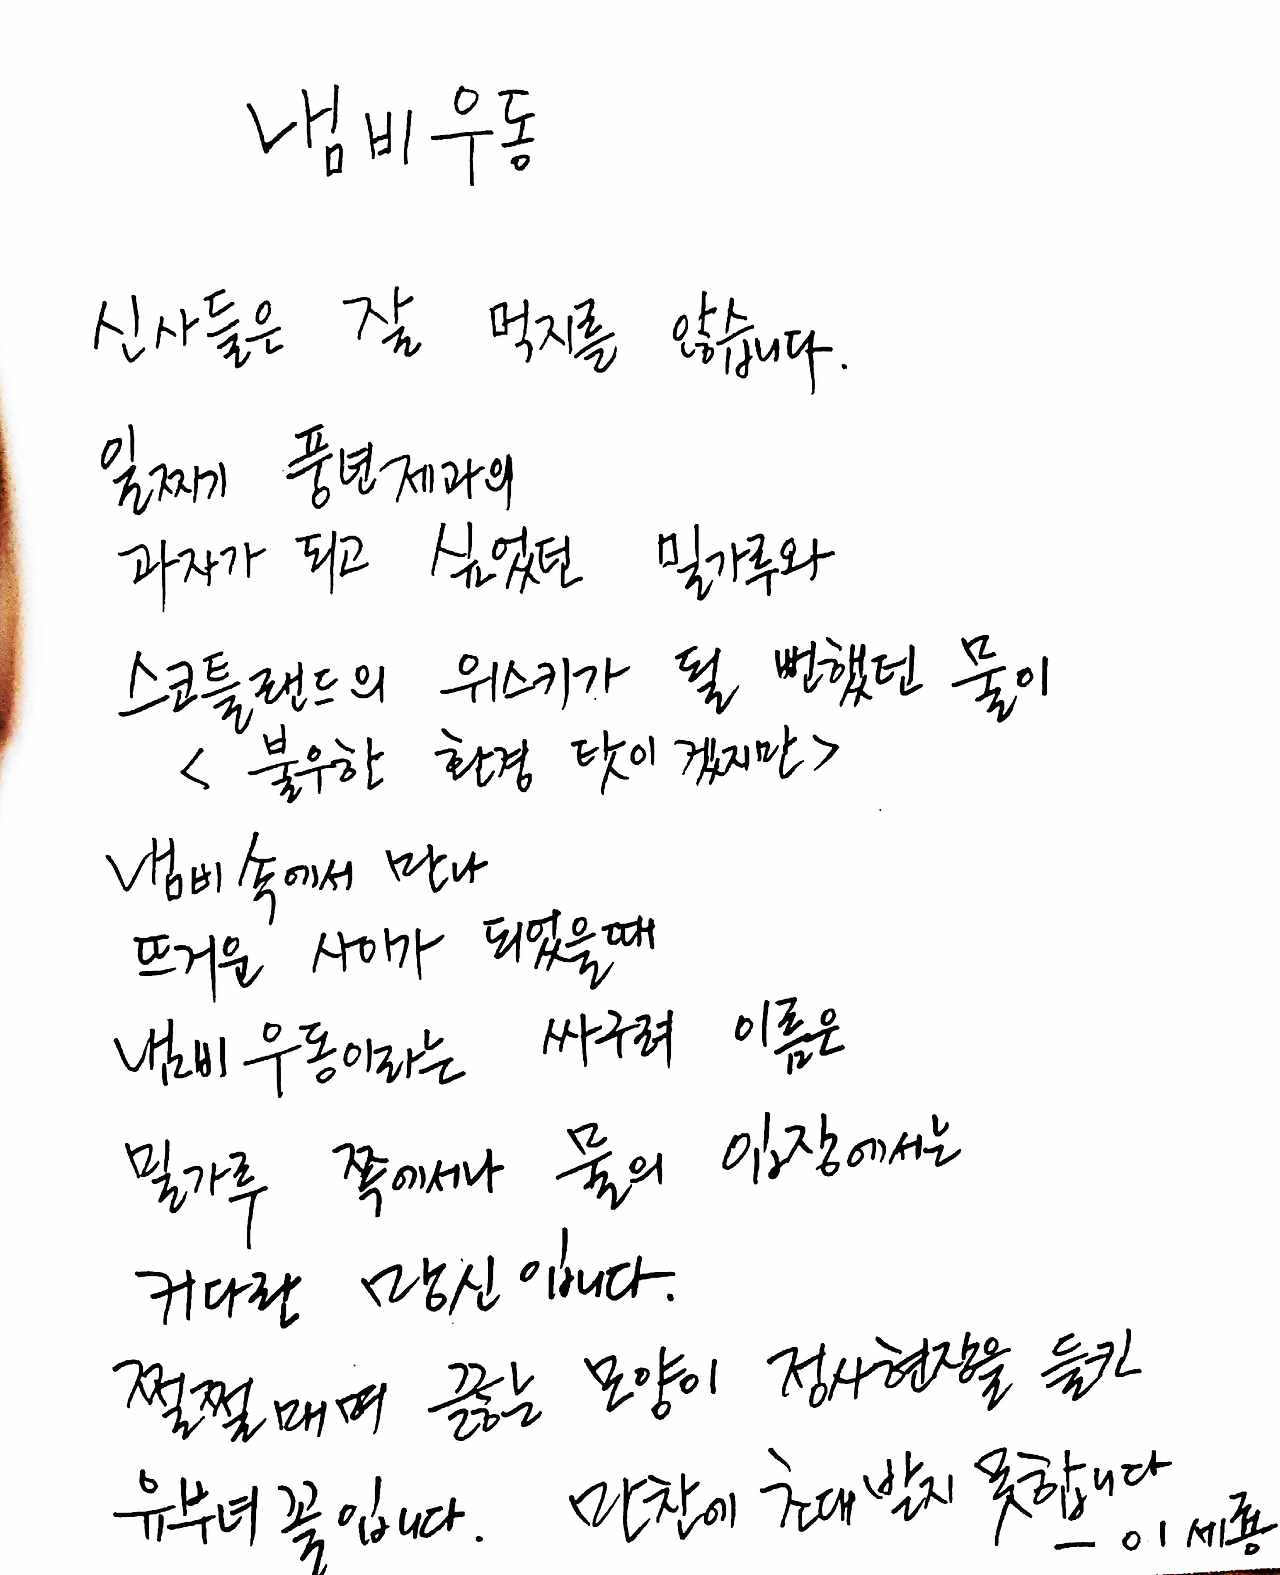 냄비우동
신사들은 잘 먹지를 않습니다.
일찌기 풍년제과의
과자가 되고 싶었던 밀가루와
스코틀랜드의 위스키가 될 뻔했던 물이
< 불우한 환경 탓이겠지만 >
냄비속에서 만나
뜨거운 사이가 되었을때
냄비우동이라는 싸구려 이름은
밀가루 쪽에서나 물의 입장에서는
커다란 망신입니다.
쩔쩔매며 끓는 모양이 정사현장을 들킨
유부녀 꼴입니다. 만찬에 초대받지 못합니다
- 이세룡